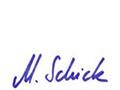 M. Schick